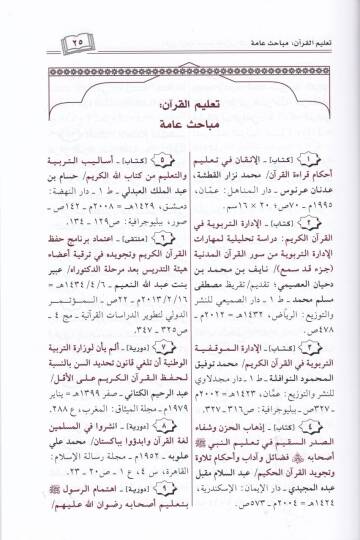 تعليم القرآن: مباحث عامة
٢٥
تعليم القرآن:
مباحث عامة
١ [كتاب] ـ الإتقان في تعليم
أحكام قراءة القرآن/ محمد نزار القطنة،
عدنان عرنوس ـ دار المناهل: عمّان،
١٩٩٥ ـ ٧٠ص؛ ٢٠ × ١٦سم.
٢ [كتاب] ـ الإدارة التربوية في
القرآن الكريم: دراسة تحليلية لمهارات
الإدارة التربوية من سور القرآن المدنية
(جزء قد سمع)/ نايف بن محمد بن
دحيان العصيمي؛ تقديم/ تقريظ مصطفى
مسلم محمد ـ ط ١ ـ دار الصميعي للنشر
والتوزيع: الرياض، ١٤٣٢هـ = ٢٠١٢م ـ
٤٧٨ص.
٣ [كتاب] ـ الإدارة الموقفية
التربوية في القرآن الكريم/ محمد توفيق
المحمود النوافلة ـ ط ١ ـ دار مجدلاوي
للنشر والتوزيع: عمّان، ١٤٢٣هـ = ٢٠٠٢م ـ
٣٢٧ص ـ ببليوجرافية: ص٣١٦ ـ ٣٢٧.
٤ [كتاب] ـ إذهاب الحزن وشفاء
الصدر السقيم في تعليم النبي ﷺ
أصحابه ﷺ فضائل وآداب وأحكام تلاوة
وتجويد القرآن الحكيم/ عبد السلام مقبل
عبده المجيدي ـ دار الإيمان: الإسكندرية،
١٤٢٤هـ = ٢٠٠٤م ـ ٥٧٣ص.
٥ [كتاب] ـ أساليب التربية
والتعليم من كتاب الله الكريم/ حسام بن
عبد الملك العبدلي ـ ط ١ ـ دار النهضة:
دمشق، ١٤٢٩هـ = ٢٠٠٨م ـ ١٤٢ص ـ
صور، ببليوجرافية: ص١٢٩ ـ ١٣٤.
٦ [منتقى] ـ اعتماد برنامج حفظ
القرآن الكريم وتجويده في ترقية أعضاء
هيئة التدريس بعد مرحلة الدكتوراه/ عبير
بنت عبد الله النعيم ـ ١٤٣٤/٤/٦هـ =
٢٠١٣/٢/١٦م ـ ٢٢ص ـ المؤتمر
الدولي لتطوير الدراسات القرآنية ـ مج ٤ ـ
ص٣٢٥ ـ ٣٤٧.
٧ [دورية] ـ ألم يأن لوزارة التربية
الوطنية أن تلغي قانون تحديد السن بالنسبة
لحفظ القرآن الكريم على الأقل/
عبد الرحيم الكتاني ـ صفر ١٣٩٩هـ = يناير
١٩٧٩م ـ مجلة الميثاق: المغرب، ع ٢٨٨.
٨ [دورية] ـ انشروا في المسلمين
لغة القرآن وابدؤوا بباكستان/ محمد علي
علوبه ـ ١٩٥٢م ـ مجلة رسالة الإسلام:
القاهرة، س ٤، ع ١ ـ ص٢٠ ـ ٢٣.
٩ [دورية] ـ اهتمام الرسول ﷺ
بتعليم أصحابه رضوان الله عليهم/